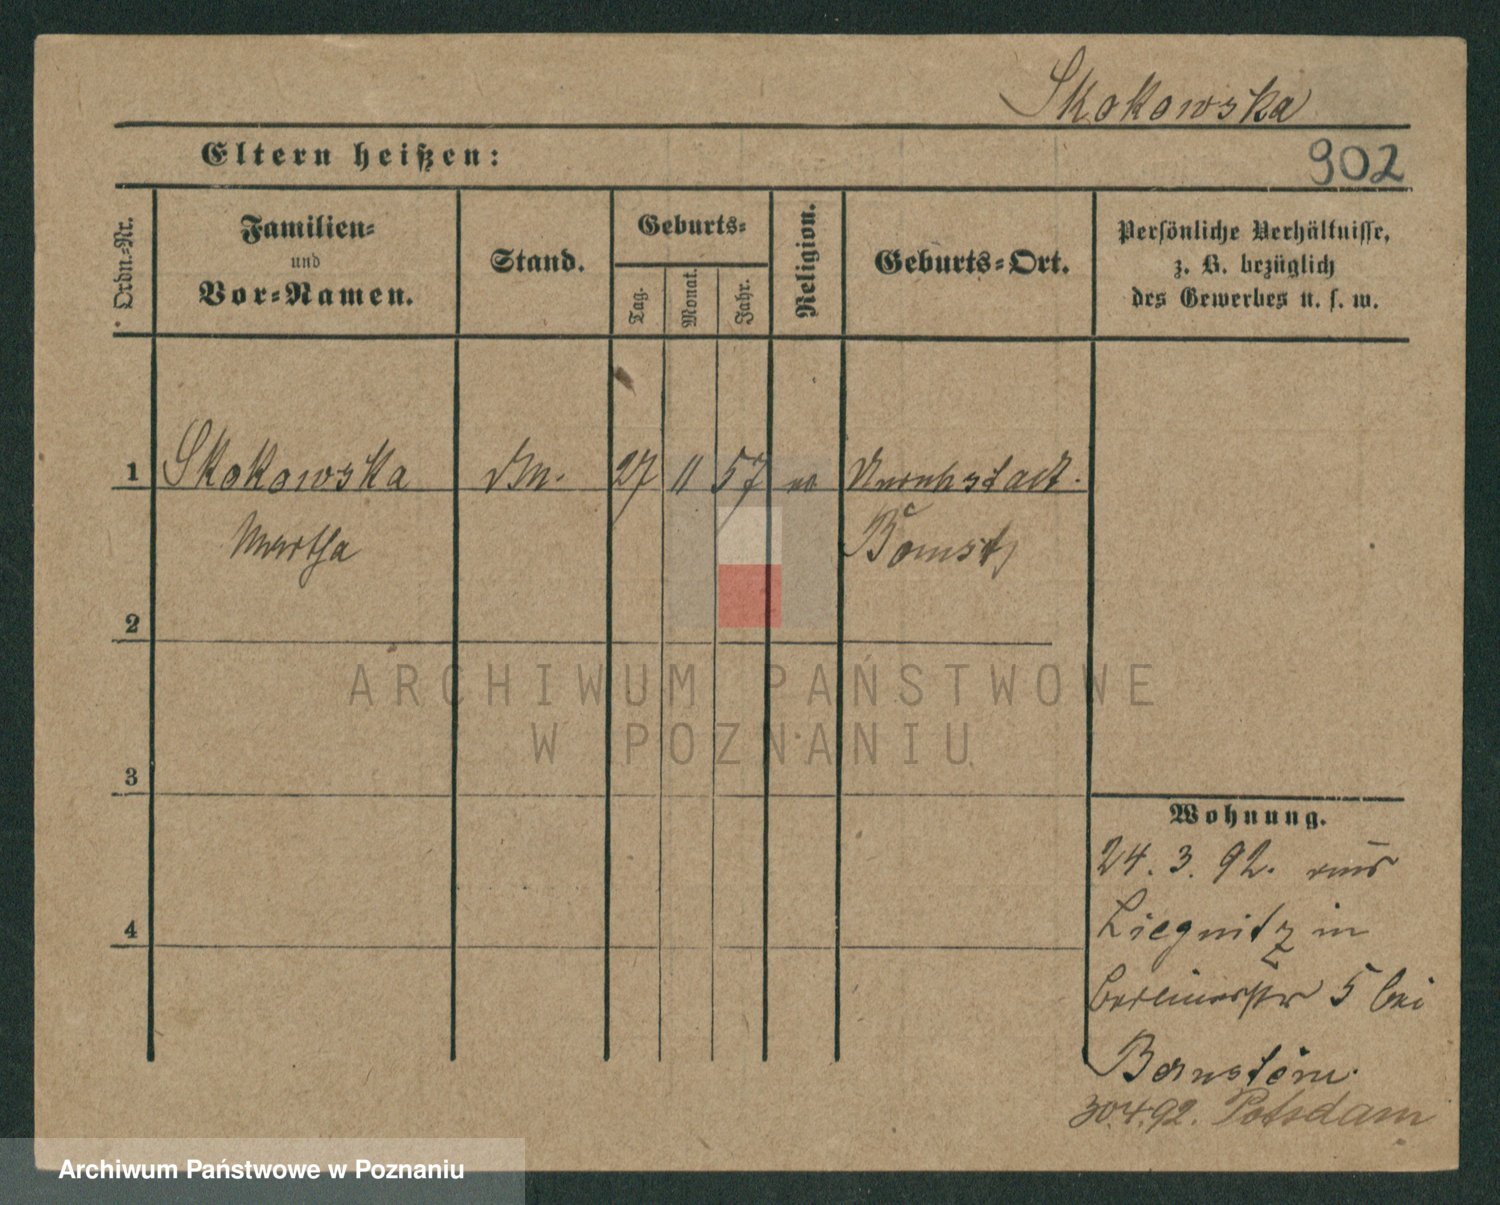 Skokowska
Eltern heißen:
902
Ordn.-Nr.
Familien-
und
Vor-Namen.
Stand.
Geburts-
Tag.
Monat.
Jahr.
Religion.
Geburts-Ort.
Persönliche Verhältnisse,
z. B. bezüglich
des Gewerbes u. s. w.
1 Skokowska 27 11 57
Martha Bomst
2
3
4
Wohnung.
24. 3. 92. aus
Liegnitz in
Berlinerstr 5 bei
30.4.92. Potsdam
ARCHIWUM PAŃSTWOWE
W POZNANIU
Archiwum Państwowe w Poznaniu